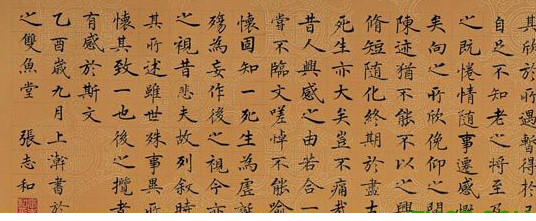 其欣於所遇暫得於
自足不知老之將至及
之既惓情隨事遷感慨
矣向之所欣俛仰之間
陳迹猶不能不以之興
脩短隨化終期於盡古
死生亦大矣豈不痛哉
昔人興感之由若合一
嘗不臨文嗟悼不能喻
懷固知一死生為虛誕
殤為妄作後之視今亦
之視昔悲夫故列敘時
其所述雖世殊事異所
懷其致一也後之攬者
有感於斯文
乙酉歲九月上澣書於
之雙魚堂 張志和